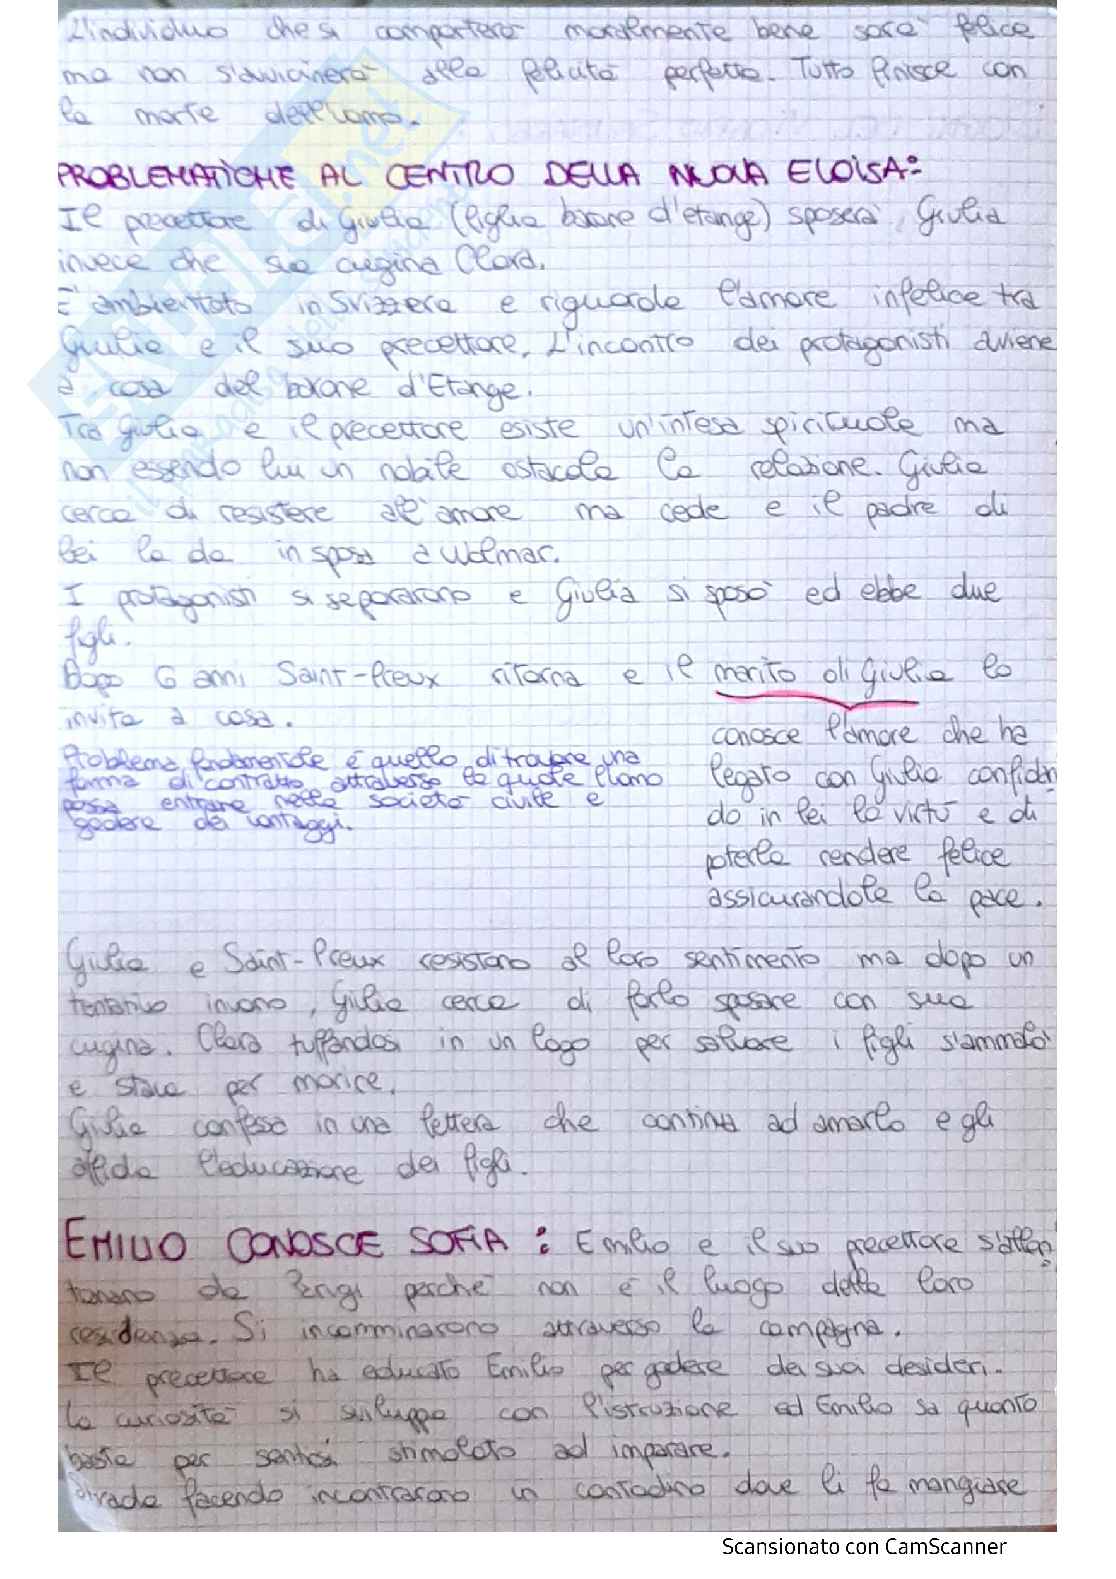 L'individuo che si comporterà moralmente bene sarà felice
ma non s'avvicinerà alla felicità perfetta. Tutto finisce con
la morte dell'uomo.
PROBLEMATICHE AL CENTRO DELLA NUOVA ELOISA:
Il precettore di Giulia (figlia barone d'etange) sposerà Giulia
invece che sua cugina Clara.
E' ambientato in Svizzera e riguarda l'amore infelice tra
Giulia e il suo precettore. L'incontro dei protagonisti avviene
a casa del barone d'Etange.
Tra giulia e il precettore esiste un'intesa spirituale ma
non essendo lui un nobile ostacola la relazione. Giulia
cerca di resistere all'amore ma cede e il padre di
lei la da in sposa a Wolmar.
I protagonisti si separarono e Giulia si sposò ed ebbe due
figli.
Dopo 6 anni Saint-Preux ritorna e il marito di Giulia lo
invita a casa.
conosce l'amore che ha
legato con Giulia confidan
do in lei la virtù e di
poterla rendere felice
assicurandole la pace.
Problema fondamentale è quello di trovare una
forma di contratto attraverso la quale l'uomo
possa entrare nella società civile e
godere dei vantaggi.
Giulia e Saint-Preux resistono al loro sentimento ma dopo un
tentativo invano, Giulia cerca di farlo sposare con sua
cugina. Clara tuffandosi in un lago per salvare i figli s'ammalò
e stava per morire.
Giulia confessa in una lettera che continua ad amarlo e gli
affida l'educazione dei figli.
EMILIO CONOSCE SOFIA: Emilio e il suo precettore s'allon
tanano da Parigi perchè non è il luogo della loro
residenza. Si incamminarono attraverso la campagna.
Il precettore ha educato Emilio per godere dei suoi desideri.
La curiosità si sviluppa con l'istruzione ed Emilio sa quanto
basta per sentirsi stimolato ad imparare.
Strada facendo incontrarono un contadino dove li fa mangiare
Scansionato con CamScanner